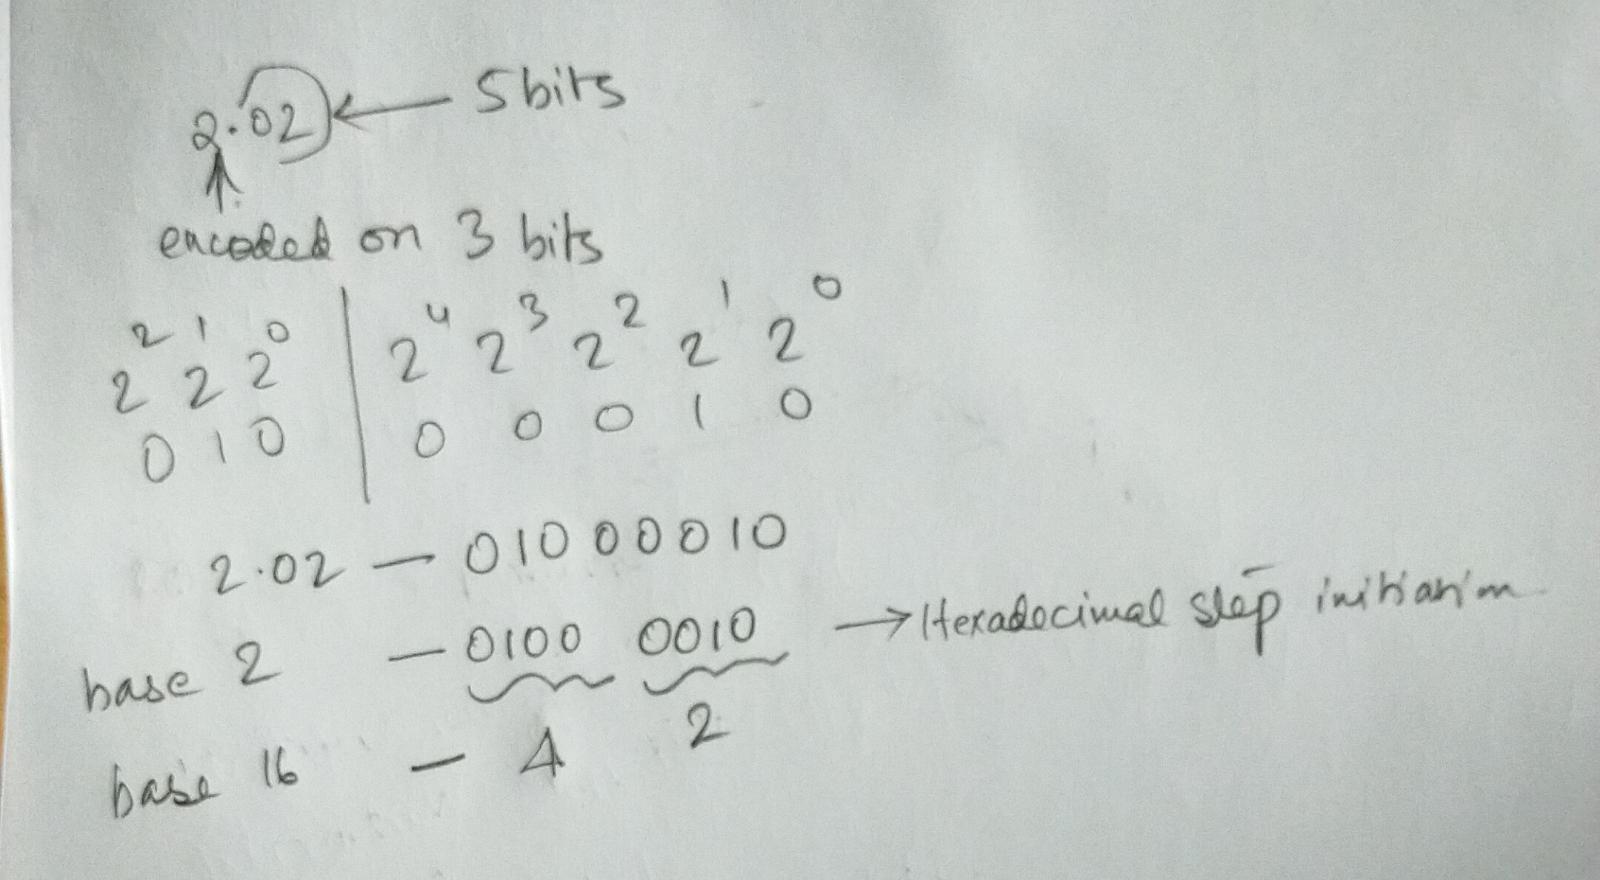 2.02 ← 5 bits
encoded on 3 bits
2² 2¹ 2⁰ | 2⁴ 2³ 2² 2¹ 2⁰
0 1 0 | 0 0 0 1 0
2.02 — 01000010
base 2 — 0100 0010 → Hexadecimal step initiation
base 16 — 4 2